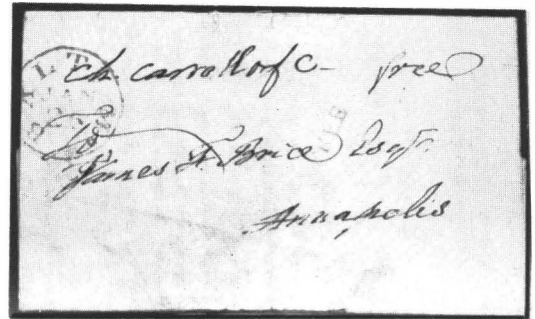 Ch. Carroll of C— free
To
James F. Brice Esqr.
Annapolis